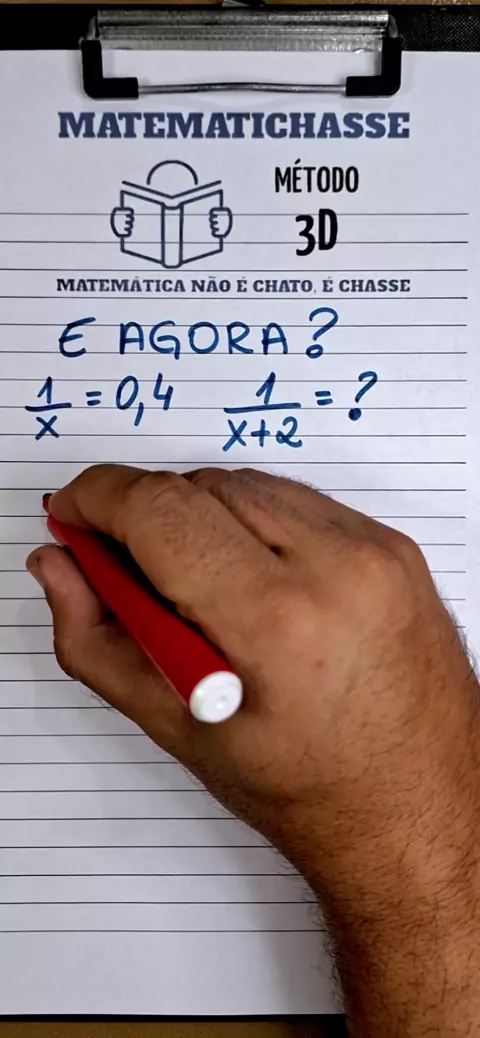 MATEMATICHASSE
MÉTODO
3D
MATEMÁTICA NÃO É CHATO, É CHASSE
E AGORA?
1/x = 0,4 1/x+2 = ?